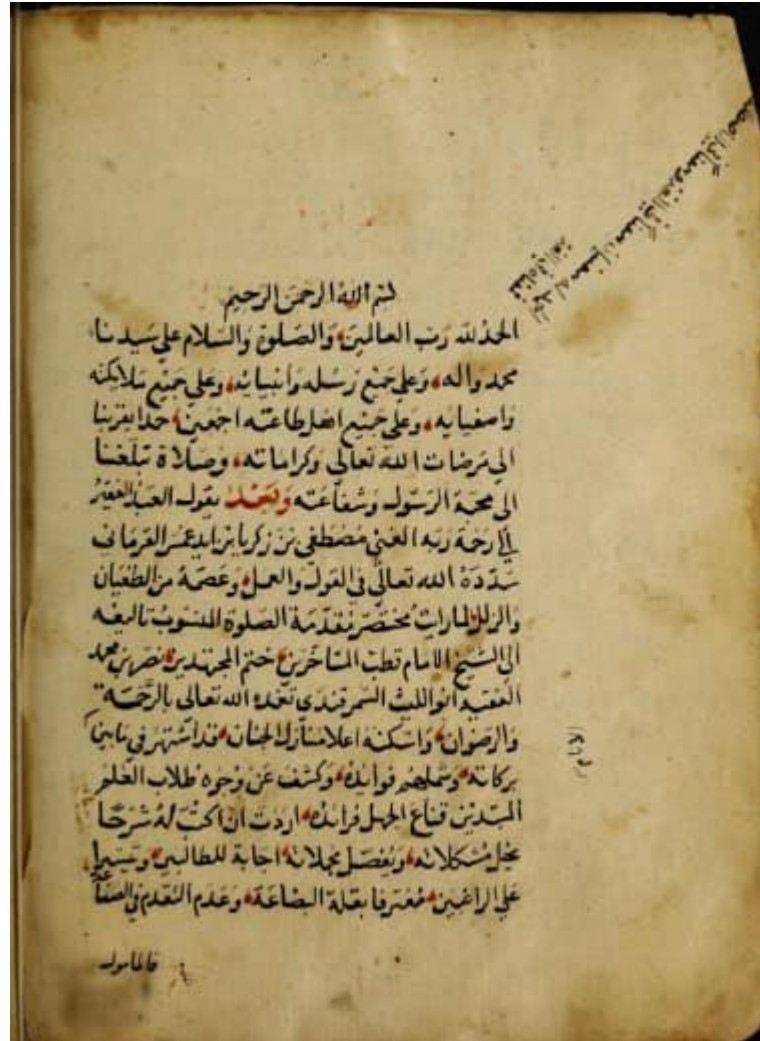 بسم الله الرحمن الرحيم
الحمد لله رب العالمين والصلوة والسلام على سيدنا
محمد واله وعلى جميع رسله وانبيائه وعلى جميع ملائكته
واصفيايه وعلى جميع اهل طاعته اجمعين حمدا يقربنا
الي مرضات الله تعالى وكراماته وصلاة تبلغنا
الى محبة الرسول وشفاعته وبعد يقول العبد الفقير
الى رحمة ربه الغني مصطفى بن زكريا بن ايدغمر القرمانى
سدده الله تعالى في القول والعمل وعصمه من الطغيان
والزلل لما رايت مختصر مقدمة الصلوة المنسوب تاليفه
الى الشيخ الامام قطب المتأخرين ختم المجتهدين نصر بن محمد
الفقيه ابو الليث السمرقندى تغمده الله تعالى بالرحمة
والرضوان واسكنه اعلا منازل الجنان قد اشتهر في ما بيننا
بركاته وشملهم فوايده وكشف عن وجوه طلاب العلم
المبتدين قناع الجهل فرايده اردت ان اكتب له شرحا
يحل مشكلاته ويفصل مجملاته اجابة للطالبين وتيسيرا
على الراغبين معترفا بقلة البضاعة وعدم التقدم في الصناعة
فالمامول